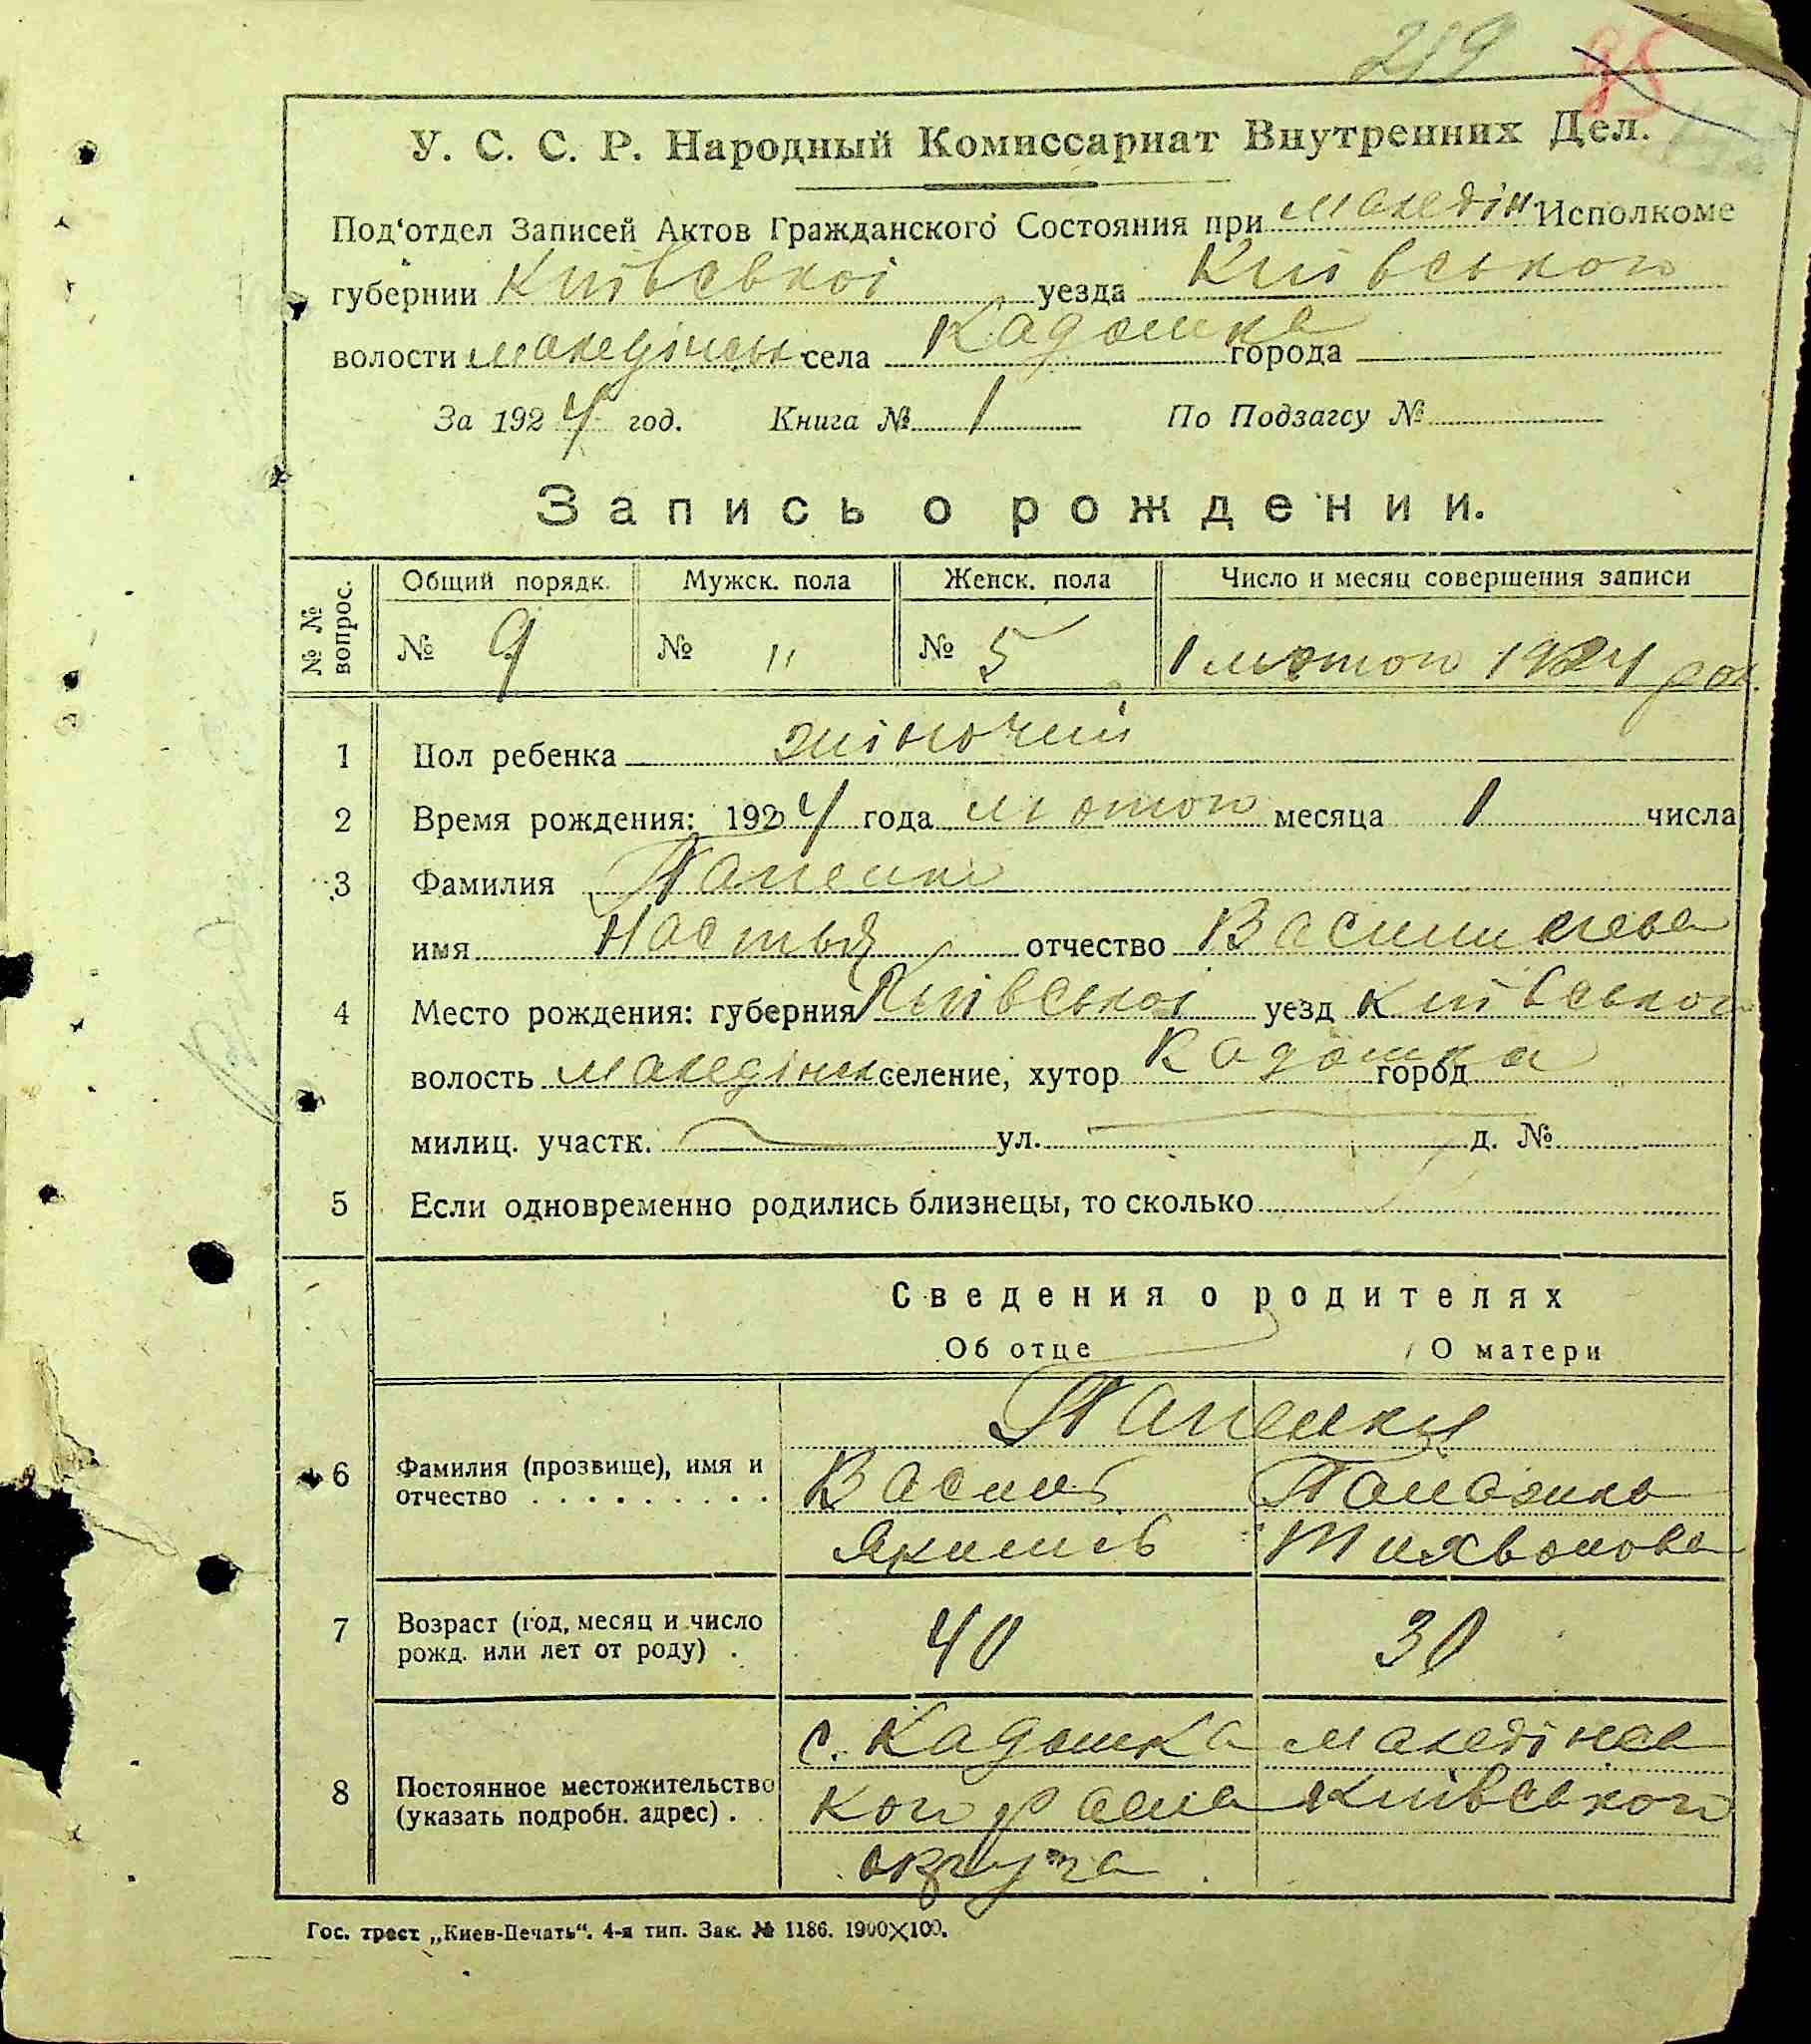 219 95
У. С. С. Р. Народный Комиссариат Внутренних Дел.
Под'отдел Записей Актов Гражданского Состояния при Македін Исполкоме
губернии Київської уезда Київського
волости Македінськ села Кадомка города
За 1924 год. Книга № 1 По Подзагсу №
Запись о рождении.
№№ вопрос. Общий порядк. Мужск. пола Женск. пола Число и месяц совершения записи
№ 9 № " № 5 1 лютого 1924 рок.
1 Пол ребенка жіночий
2 Время рождения: 1924 года лютого месяца 1 числа
3 Фамилия
имя Настья отчество Василиева
4 Место рождения: губерния Київської уезд Київського
волость Македінск селение, хутор Кадомка город
милиц. участк. ул. д. №
5 Если одновременно родились близнецы, то сколько
Сведения о родителях
Об отце О матери
6 Фамилия (прозвище), имя и
отчество . . . . . . . . . . Василь
Якимів
7 Возраст (год, месяц и число
рожд. или лет от роду) . 40 30
с. Кадомка Македінсь
8 Постоянное местожительство
(указать подробн. адрес) . кого района Київського
округа
Гос. трест „Киев-Печать". 4-я тип. Зак. № 1186. 1900×100.